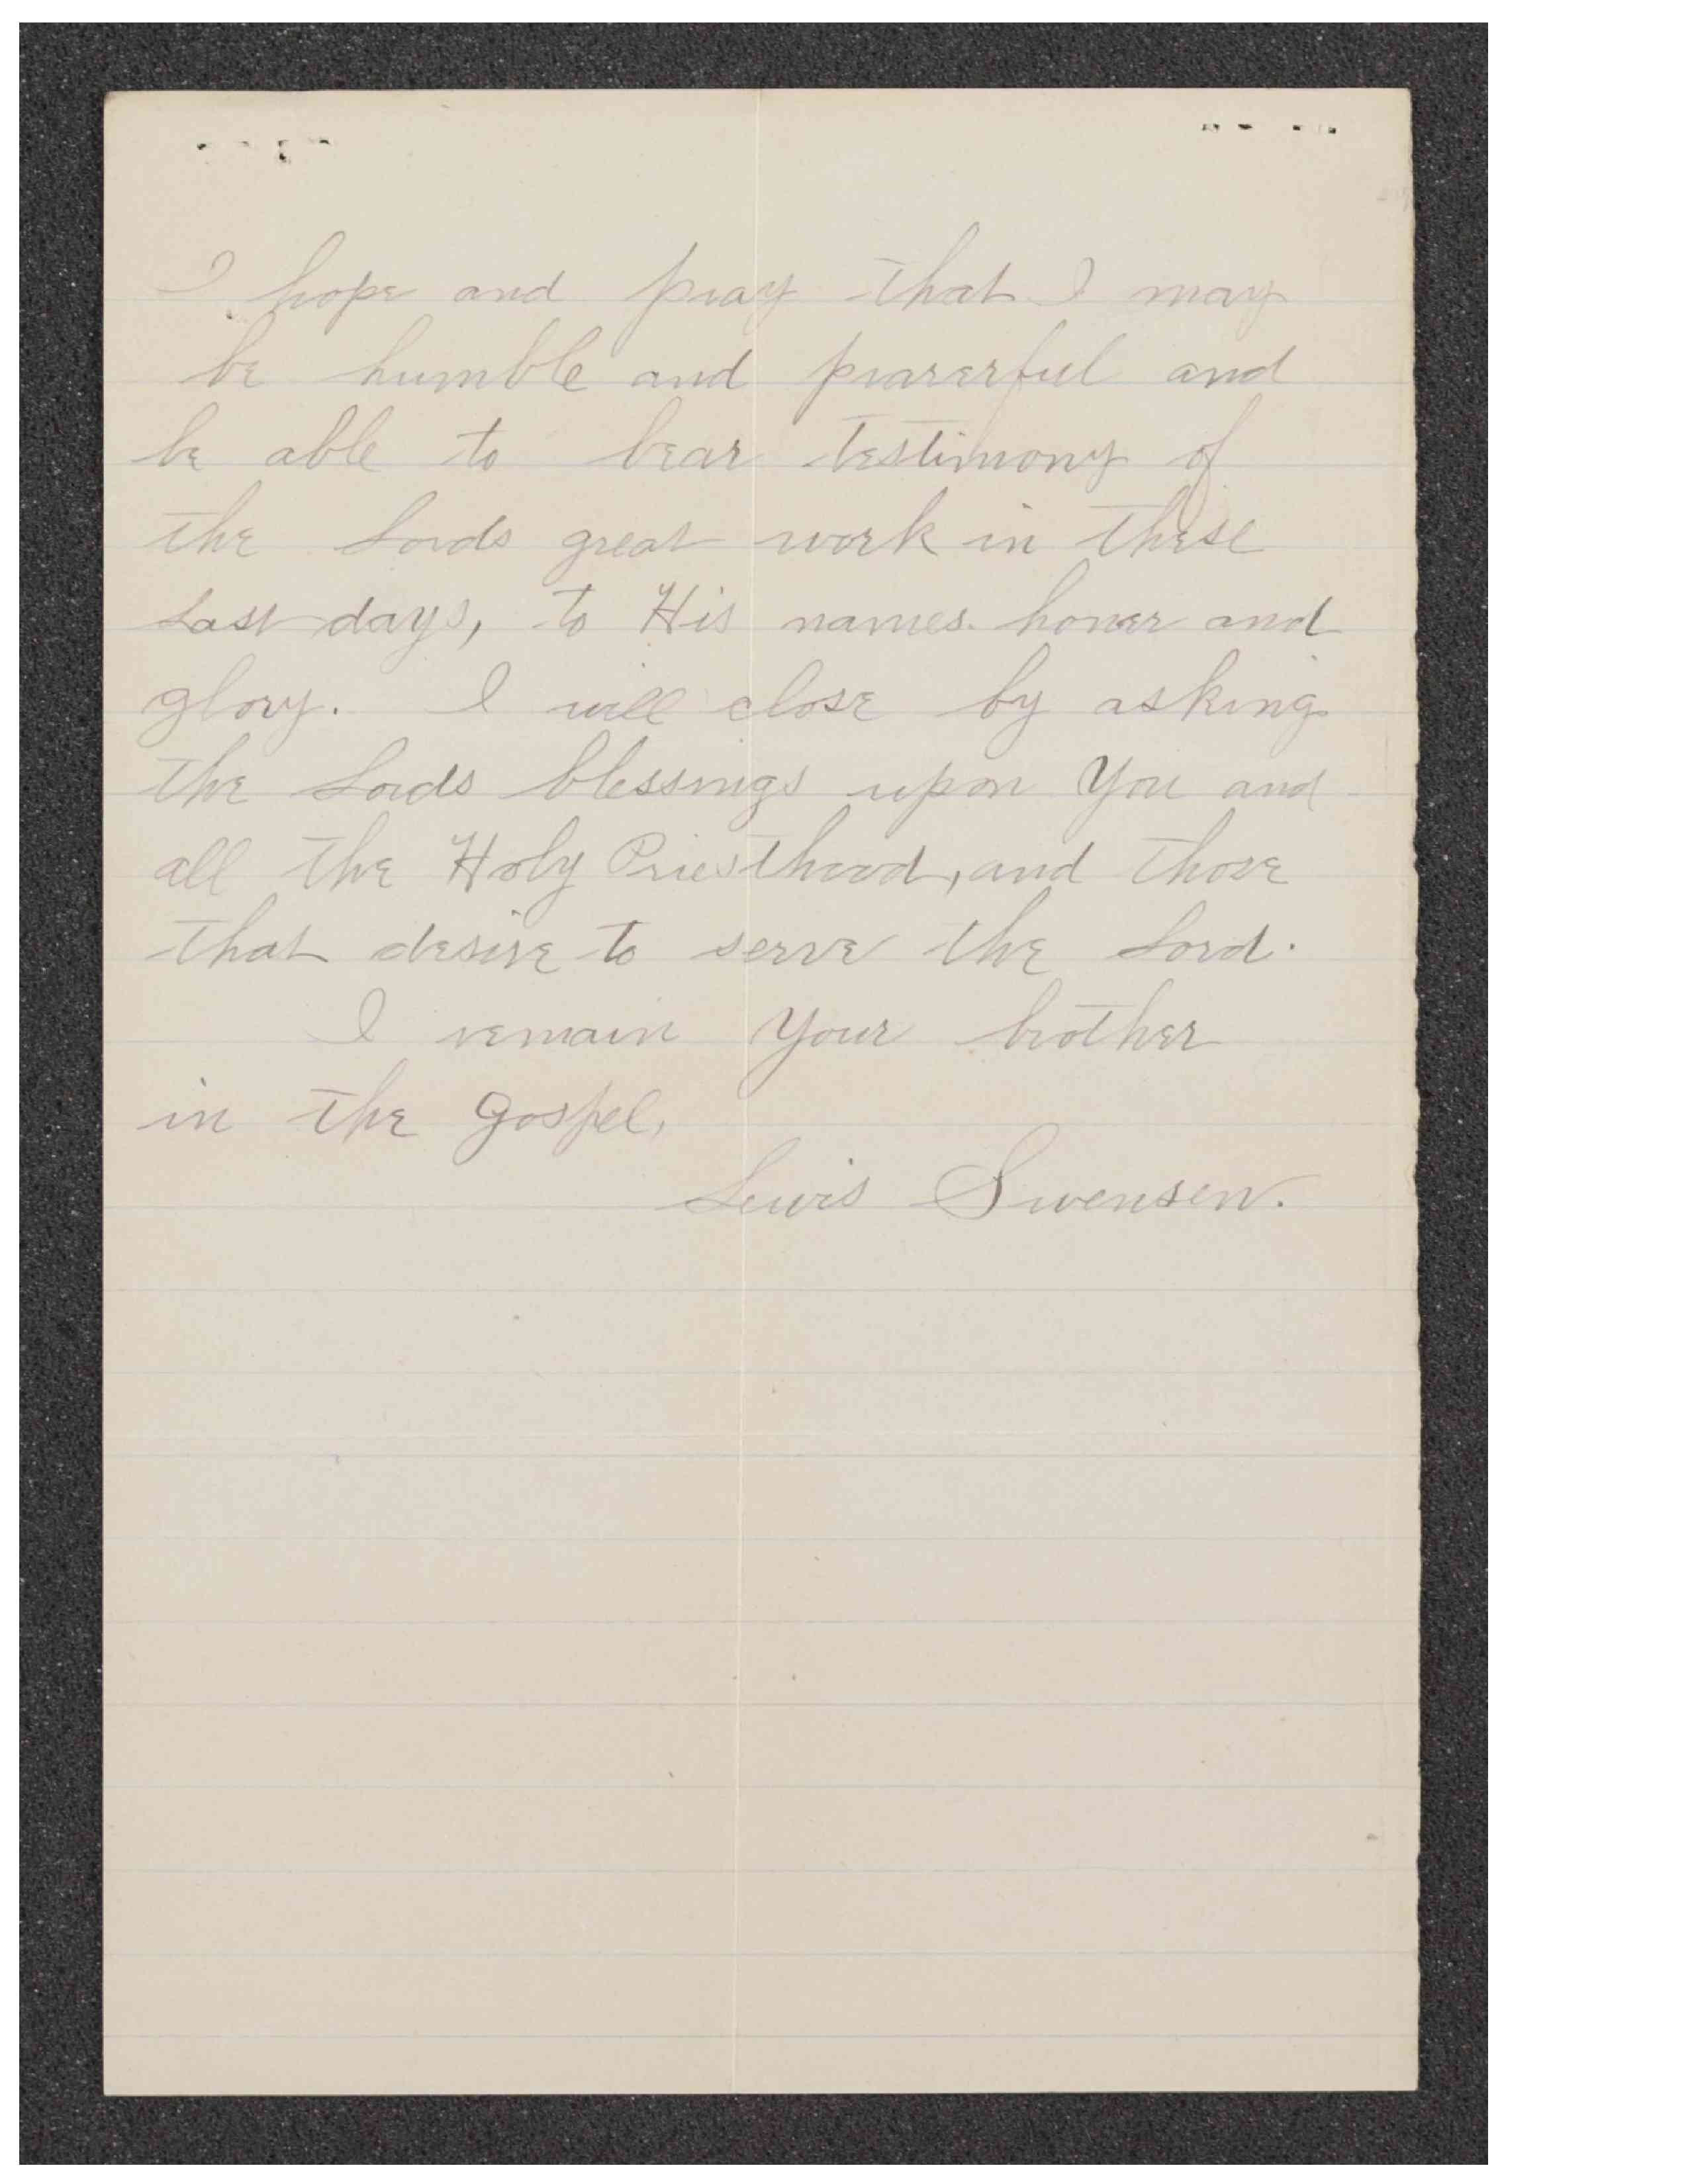 I hope and pray that I may
be humble and prarerful and
be able to bear testimony of
the Lords great work in these
Last days, to His names honer and
glory. I will close by asking
the Lords blessings upon You and
all the Holy Priesthood, and those
that desire to serve the Lord.
I remain Your brother
in the Gospel,
Lewis Swensen.